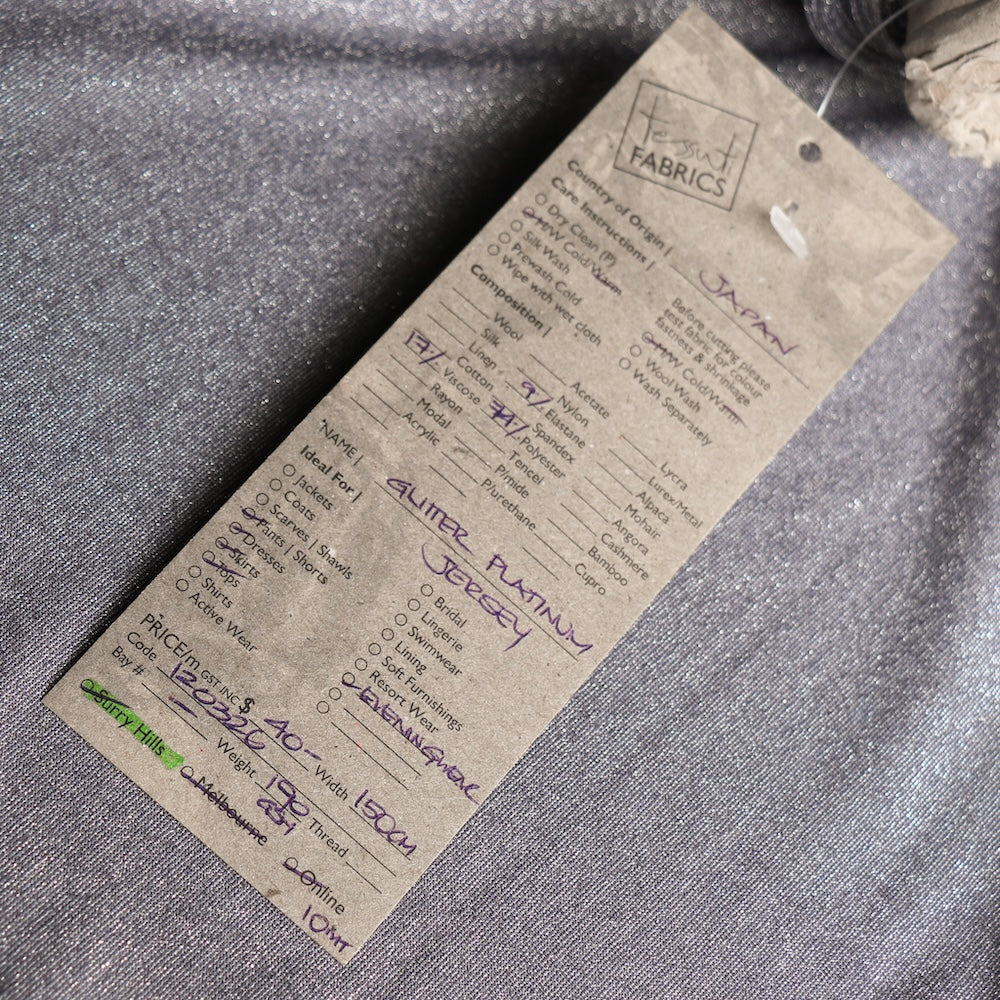 tessuti
FABRICS
Country of Origin | JAPAN
Care Instructions |
Dry Clean (P)
H/W Cold/Warm
Silk Wash
Prewash Cold
Wipe with wet cloth
Before cutting please
test fabric for colour
fastness & shrinkage
H/W Cold/Warm
Wool Wash
Wash Separately
Composition |
Wool
Silk
Linen
Cotton
17% Viscose
Rayon
Modal
Acrylic
Acetate
Nylon
9% Elastane
Spandex
74% Polyester
Tencel
Pimide
Plurethane
Lycra
Lurex/Metal
Alpaca
Mohair
Angora
Cashmere
Bamboo
Cupro
"NAME | GLITTER PLATINUM
JERSEY
Ideal For |
Jackets
Coats
Scarves | Shawls
Pants | Shorts
Dresses
Skirts
Tops
Shirts
Active Wear
Bridal
Lingerie
Swimwear
Lining
Soft Furnishings
Resort Wear
EVENINGWEAR
PRICE/m GST INC $ 40-
Width 150CM
Code 120326
Weight 190
GSM
Thread
Bay #
Surry Hills
Melbourne
Online
10MT